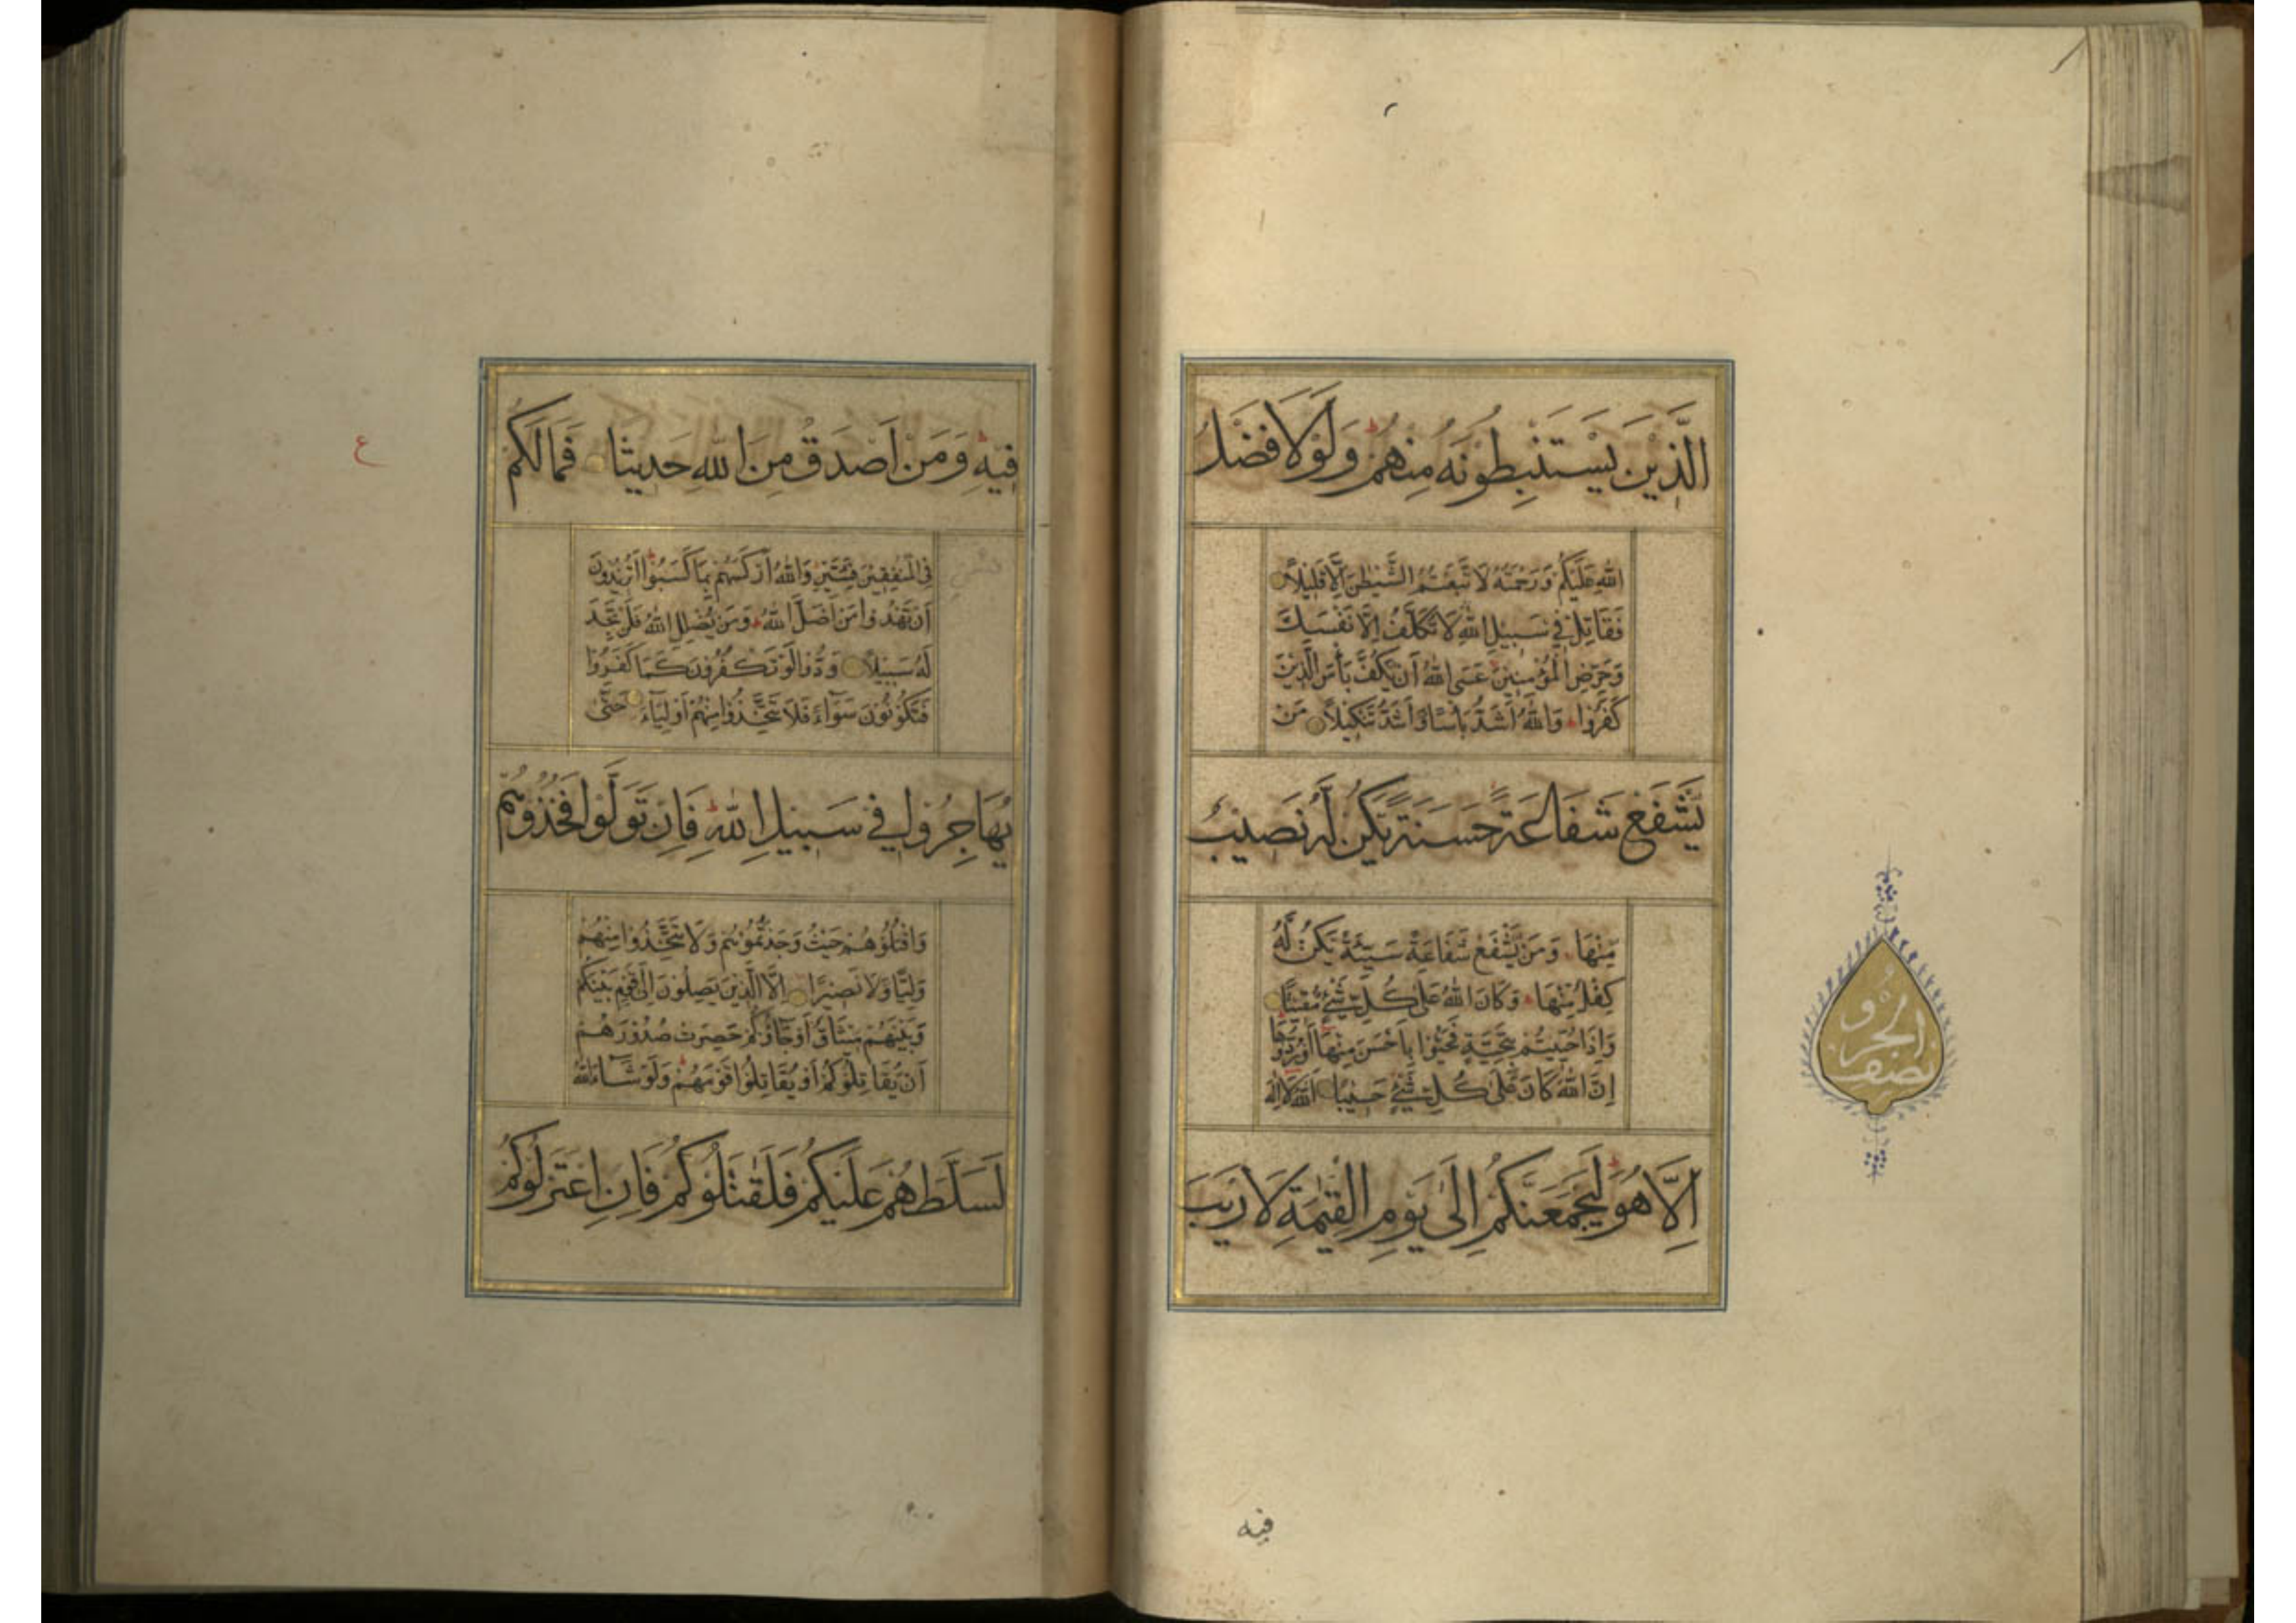 الَّذِيْنَ يَسْتَنْبِطُوْنَهُ مِنْهُمْ ط وَلَوْلَا فَضْلُ
اللّٰهِ عَلَيْكُمْ وَرَحْمَتُهُ لَا تَّبَعْتُمُ الشَّيْطٰنَ اِلَّا قَلِيْلًا
فَقَاتِلْ فِيْ سَبِيْلِ اللّٰهِ لَا تُكَلَّفُ اِلَّا نَفْسَكَ
وَحَرِّضِ الْمُؤْمِنِيْنَ عَسَى اللّٰهُ اَنْ يَكُفَّ بَأْسَ الَّذِيْنَ
كَفَرُوْا ط وَاللّٰهُ اَشَدُّ بَأْسًا وَاَشَدُّ تَنْكِيْلًا مَنْ
يَشْفَعْ شَفَاعَةً حَسَنَةً يَكُنْ لَهُ نَصِيْبٌ
مِنْهَا وَمَنْ يَشْفَعْ شَفَاعَةً سَيِّئَةً يَكُنْ لَهُ
كِفْلٌ مِنْهَا ط وَكَانَ اللّٰهُ عَلٰى كُلِّ شَيْءٍ مُقِيْتًا
وَاِذَا حُيِّيْتُمْ بِتَحِيَّةٍ فَحَيُّوْا بِاَحْسَنَ مِنْهَا اَوْ رُدُّوْهَا
اِنَّ اللّٰهَ كَانَ عَلٰى كُلِّ شَيْءٍ حَسِيْبًا اَللّٰهُ لَا اِلٰهَ
اِلَّا هُوَ ط لَيَجْمَعَنَّكُمْ اِلٰى يَوْمِ الْقِيٰمَةِ لَا رَيْبَ
فيه
نصف الجزو
فِيْهِ ط وَمَنْ اَصْدَقُ مِنَ اللّٰهِ حَدِيْثًا فَمَا لَكُمْ
فِى الْمُنٰفِقِيْنَ فِئَتَيْنِ وَاللّٰهُ اَرْكَسَهُمْ بِمَا كَسَبُوْا ط اَتُرِيْدُوْنَ
اَنْ تَهْدُوْا مَنْ اَضَلَّ اللّٰهُ ط وَمَنْ يُضْلِلِ اللّٰهُ فَلَنْ تَجِدَ
لَهُ سَبِيْلًا وَدُّوْا لَوْ تَكْفُرُوْنَ كَمَا كَفَرُوْا
فَتَكُوْنُوْنَ سَوَآءً فَلَا تَتَّخِذُوْا مِنْهُمْ اَوْلِيَآءَ حَتّٰى
يُهَاجِرُوْا فِيْ سَبِيْلِ اللّٰهِ ط فَاِنْ تَوَلَّوْا فَخُذُوْهُمْ
وَاقْتُلُوْهُمْ حَيْثُ وَجَدْتُمُوْهُمْ وَلَا تَتَّخِذُوْا مِنْهُمْ
وَلِيًّا وَلَا نَصِيْرًا اِلَّا الَّذِيْنَ يَصِلُوْنَ اِلٰى قَوْمٍ بَيْنَكُمْ
وَبَيْنَهُمْ مِيْثَاقٌ اَوْ جَآؤُكُمْ حَصِرَتْ صُدُوْرُهُمْ
اَنْ يُقَاتِلُوْكُمْ اَوْ يُقَاتِلُوْا قَوْمَهُمْ ط وَلَوْ شَآءَ اللّٰهُ
لَسَلَّطَهُمْ عَلَيْكُمْ فَلَقٰتَلُوْكُمْ فَاِنِ اعْتَزَلُوْكُمْ
ع